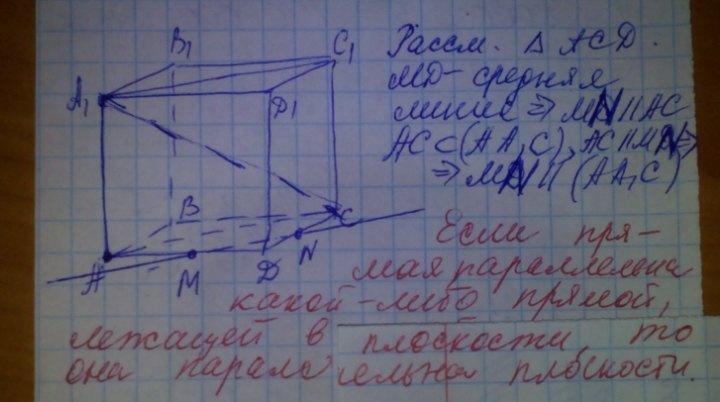 B₁ C₁
A₁ D₁
B C
A M D N
Рассм. △ ACD.
MD- средняя
линия ⇒ MN || AC
AC ⊂ (AA₁C), AC || MN ⇒
⇒ MN || (AA₁C)
Если пря-
мая параллельна
какой-либо прямой,
лежащей в плоскости, то
она паралельна плоскости.